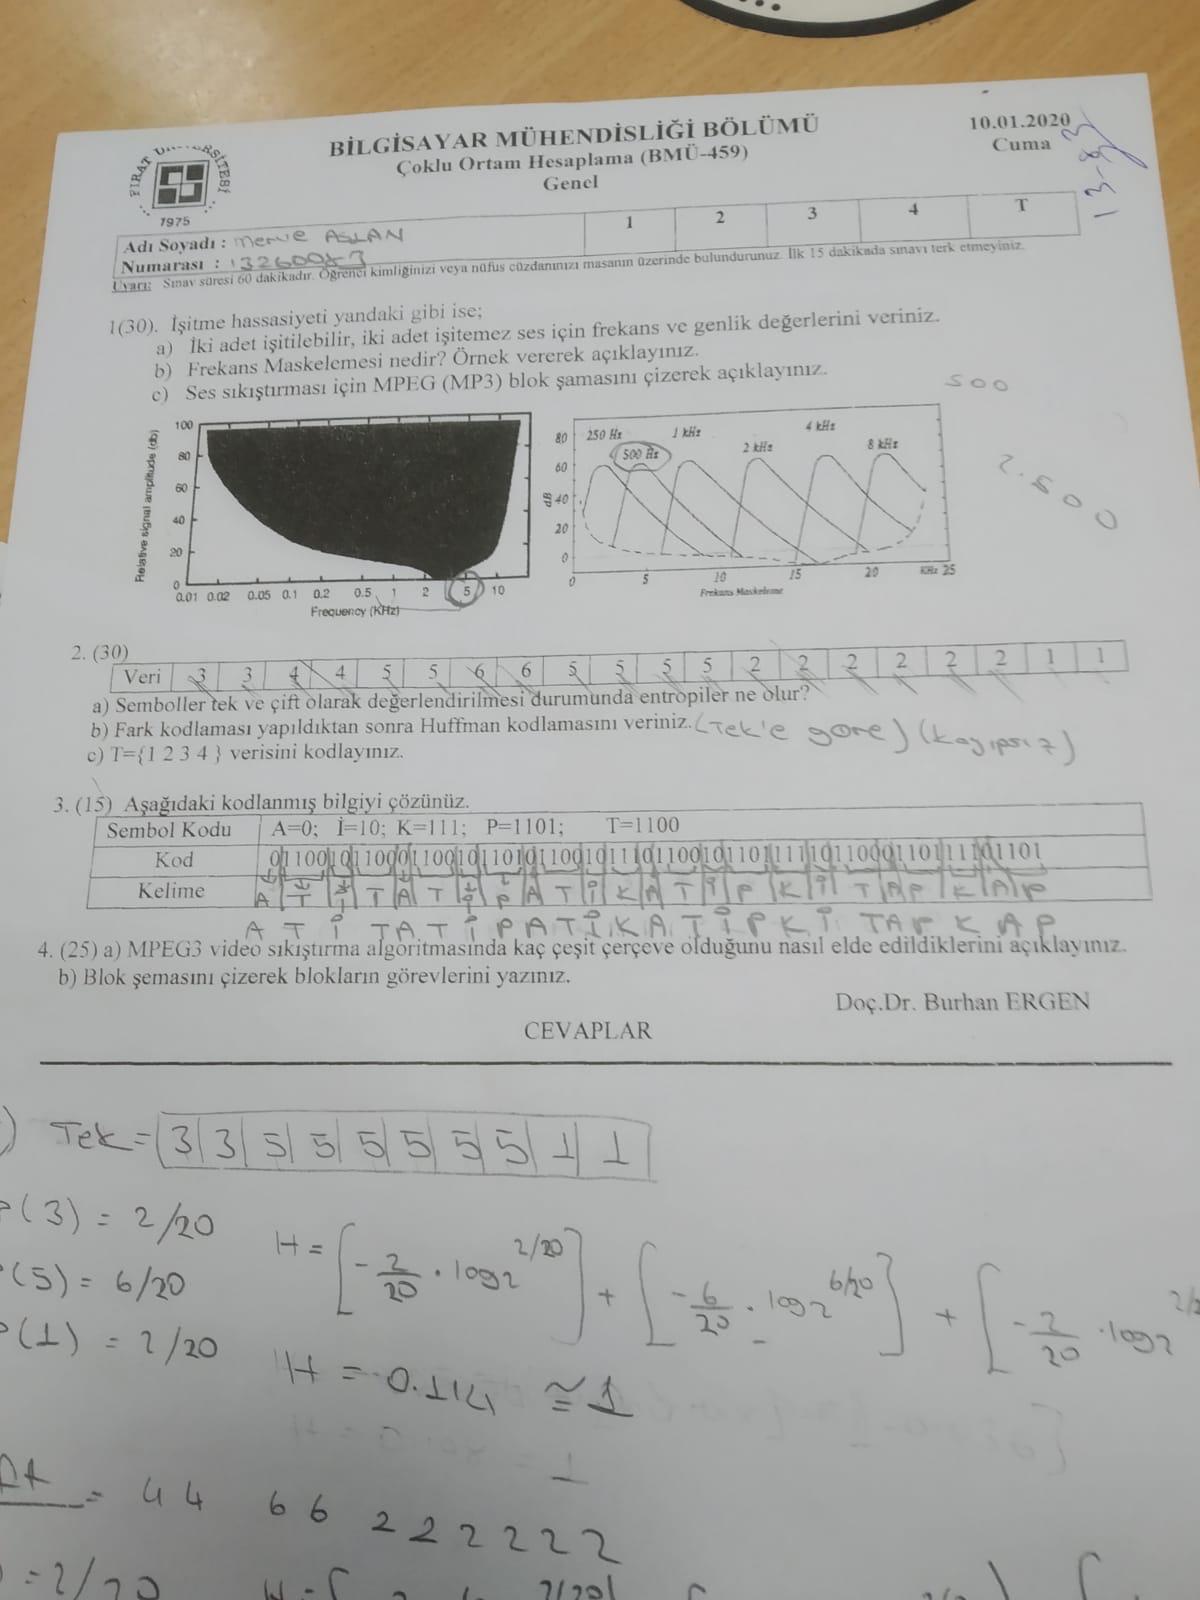 BİLGİSAYAR MÜHENDİSLİĞİ BÖLÜMÜ
Çoklu Ortam Hesaplama (BMÜ-459)
Genel
10.01.2020
Cuma
FIRAT ÜNİVERSİTESİ
1975
1 2 3 4 T
Adı Soyadı : Merve ASLAN
Numarası :
Uyarı: Sınav süresi 60 dakikadır. Öğrenci kimliğinizi veya nüfus cüzdanınızı masanın üzerinde bulundurunuz. İlk 15 dakikada sınavı terk etmeyiniz.
1(30). İşitme hassasiyeti yandaki gibi ise;
a) İki adet işitilebilir, iki adet işitemez ses için frekans ve genlik değerlerini veriniz.
b) Frekans Maskelemesi nedir? Örnek vererek açıklayınız.
c) Ses sıkıştırması için MPEG (MP3) blok şamasını çizerek açıklayınız.
500
2.500
Relative signal amplitude (db)
100
80
60
40
20
0
0.01 0.02 0.05 0.1 0.2 0.5 1 2 5 10
Frequency (KHz)
dB
80
60
40
20
0
250 Hz 500 Hz 1 kHz 2 kHz 4 kHz 8 kHz
0 5 10 15 20 KHz 25
Frekans Maskeleme
2. (30)
Veri 3 3 4 4 5 5 6 6 5 5 5 5 2 2 2 2 2 2 1 1
a) Semboller tek ve çift olarak değerlendirilmesi durumunda entropiler ne olur?
b) Fark kodlaması yapıldıktan sonra Huffman kodlamasını veriniz. (Tek'e göre) (kayıpsız)
c) T={1 2 3 4 } verisini kodlayınız.
3. (15) Aşağıdaki kodlanmış bilgiyi çözünüz.
Sembol Kodu A=0; İ=10; K=111; P=1101; T=1100
Kod
Kelime A T İ T A T İ P A T İ K A T İ P K İ T A P K A P
A T İ T A T İ P A T İ K A T İ P K İ T A P K A P
4. (25) a) MPEG3 video sıkıştırma algoritmasında kaç çeşit çerçeve olduğunu nasıl elde edildiklerini açıklayınız.
b) Blok şemasını çizerek blokların görevlerini yazınız.
Doç.Dr. Burhan ERGEN
CEVAPLAR
) Tek= 3 3 5 5 5 5 5 5 1 1
P(3) = 2/20
P(5) = 6/20
P(1) = 2/20
H = [-2/20 . log2 2/20] + [-6/20 . log2 6/20] + [-2/20 . log2
H = 0.114 ≅ 1
= 4 4 6 6 2 2 2 2 2 2
= 2/20